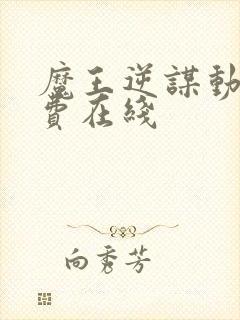 魔王逆謀動
費在綫
向秀芳